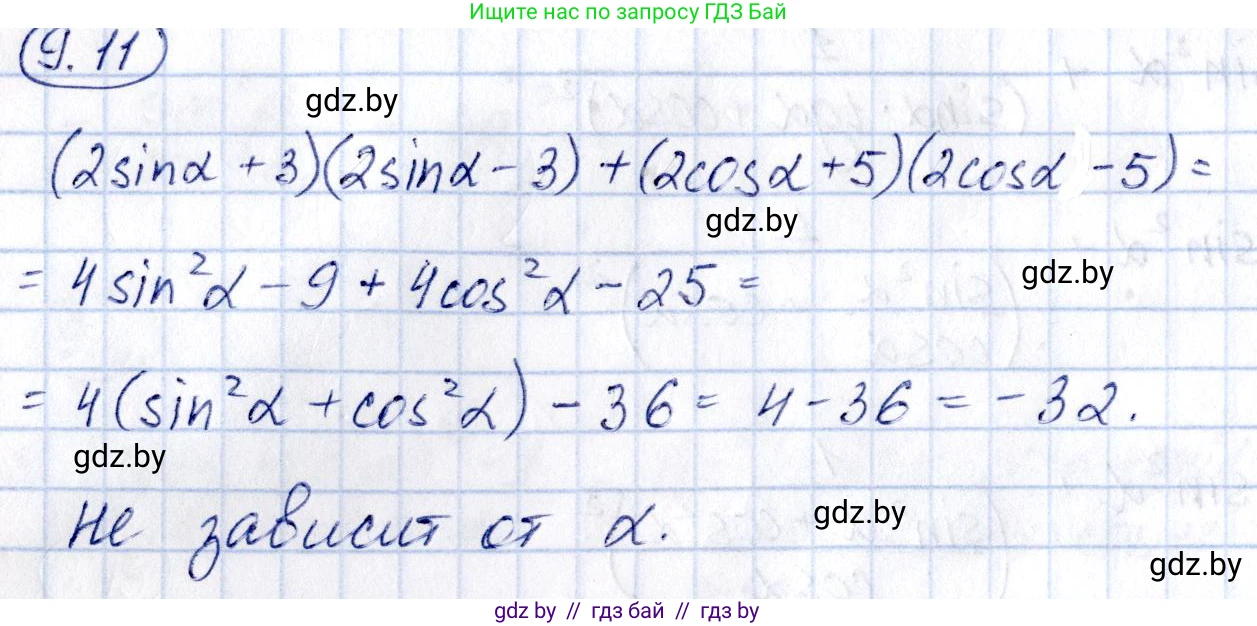 Ищите нас по запросу ГДЗ Бай
9.11
gdz.by
(2sinα + 3)(2sinα - 3) + (2cosα + 5)(2cosα - 5) =
gdz.by
= 4sin²α - 9 + 4cos²α - 25 =
gdz.by
= 4(sin²α + cos²α) - 36 = 4 - 36 = -32.
gdz.by
не зависит от α.
gdz.by
gdz.by
gdz.by // гдз бай // гдз by